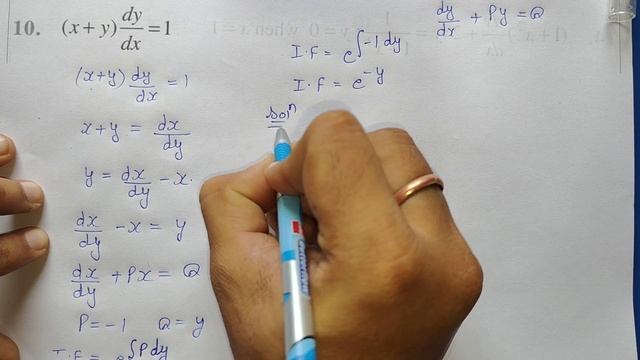 10. (x + y) dy/dx = 1
(x+y) dy/dx = 1
x+y = dx/dy
y = dx/dy - x.
dx/dy - x = y
dx/dy + Px = Q
P = -1 Q = y
I.F = e^∫Pdy
dy/dx + Py = Q
I.F = e^∫-1 dy
I.F = e^-y
Sol^n